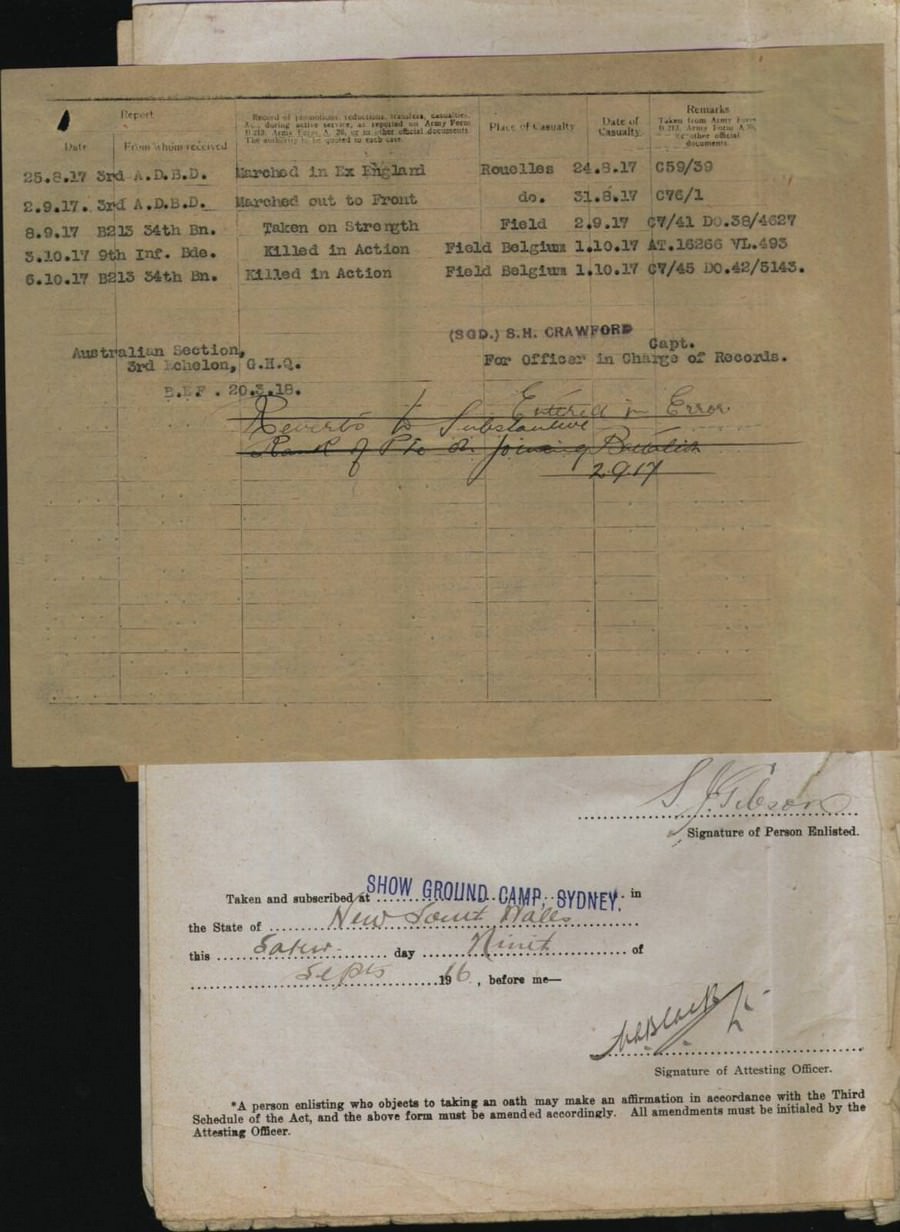 Report
Record of promotions, reductions, transfers, casualties,
&c., during active service, as reported on Army Form
B.213, Army Form A. 36, or in other official documents.
The authority to be quoted in each case.
Place of Casualty
Date of
Casualty.
Remarks
Taken from Army Form
B.213, Army Form A.36,
or other official
documents.
Date
From whom received
25.8.17 3rd A.D.B.D. Marched in Ex England Rouelles 24.8.17 C59/39
2.9.17. 3rd A.D.B.D. Marched out to Front do. 31.8.17 C76/1
8.9.17 B213 34th Bn. Taken on Strength Field 2.9.17 C7/41 DO.38/4627
3.10.17 9th Inf. Bde. Killed in Action Field Belgium 1.10.17 AT.16266 VL.493
6.10.17 B213 34th Bn. Killed in Action Field Belgium 1.10.17 C7/45 DO.42/5143.
(SGD.) S.H. CRAWFORD
Capt.
Australian Section,
3rd Echelon, G.H.Q.
For Officer in Charge of Records.
B.E.F. 20.3.18.
Entered in Error.
Reverts to Substantive
Rank of Pte on joining Battalion
2917
S J Gibson
Signature of Person Enlisted.
Taken and subscribed at SHOW GROUND CAMP, SYDNEY. in
the State of New South Wales
this Satur day Ninth of
Septs 1916, before me—
Signature of Attesting Officer.
*A person enlisting who objects to taking an oath may make an affirmation in accordance with the Third
Schedule of the Act, and the above form must be amended accordingly. All amendments must be initialed by the
Attesting Officer.